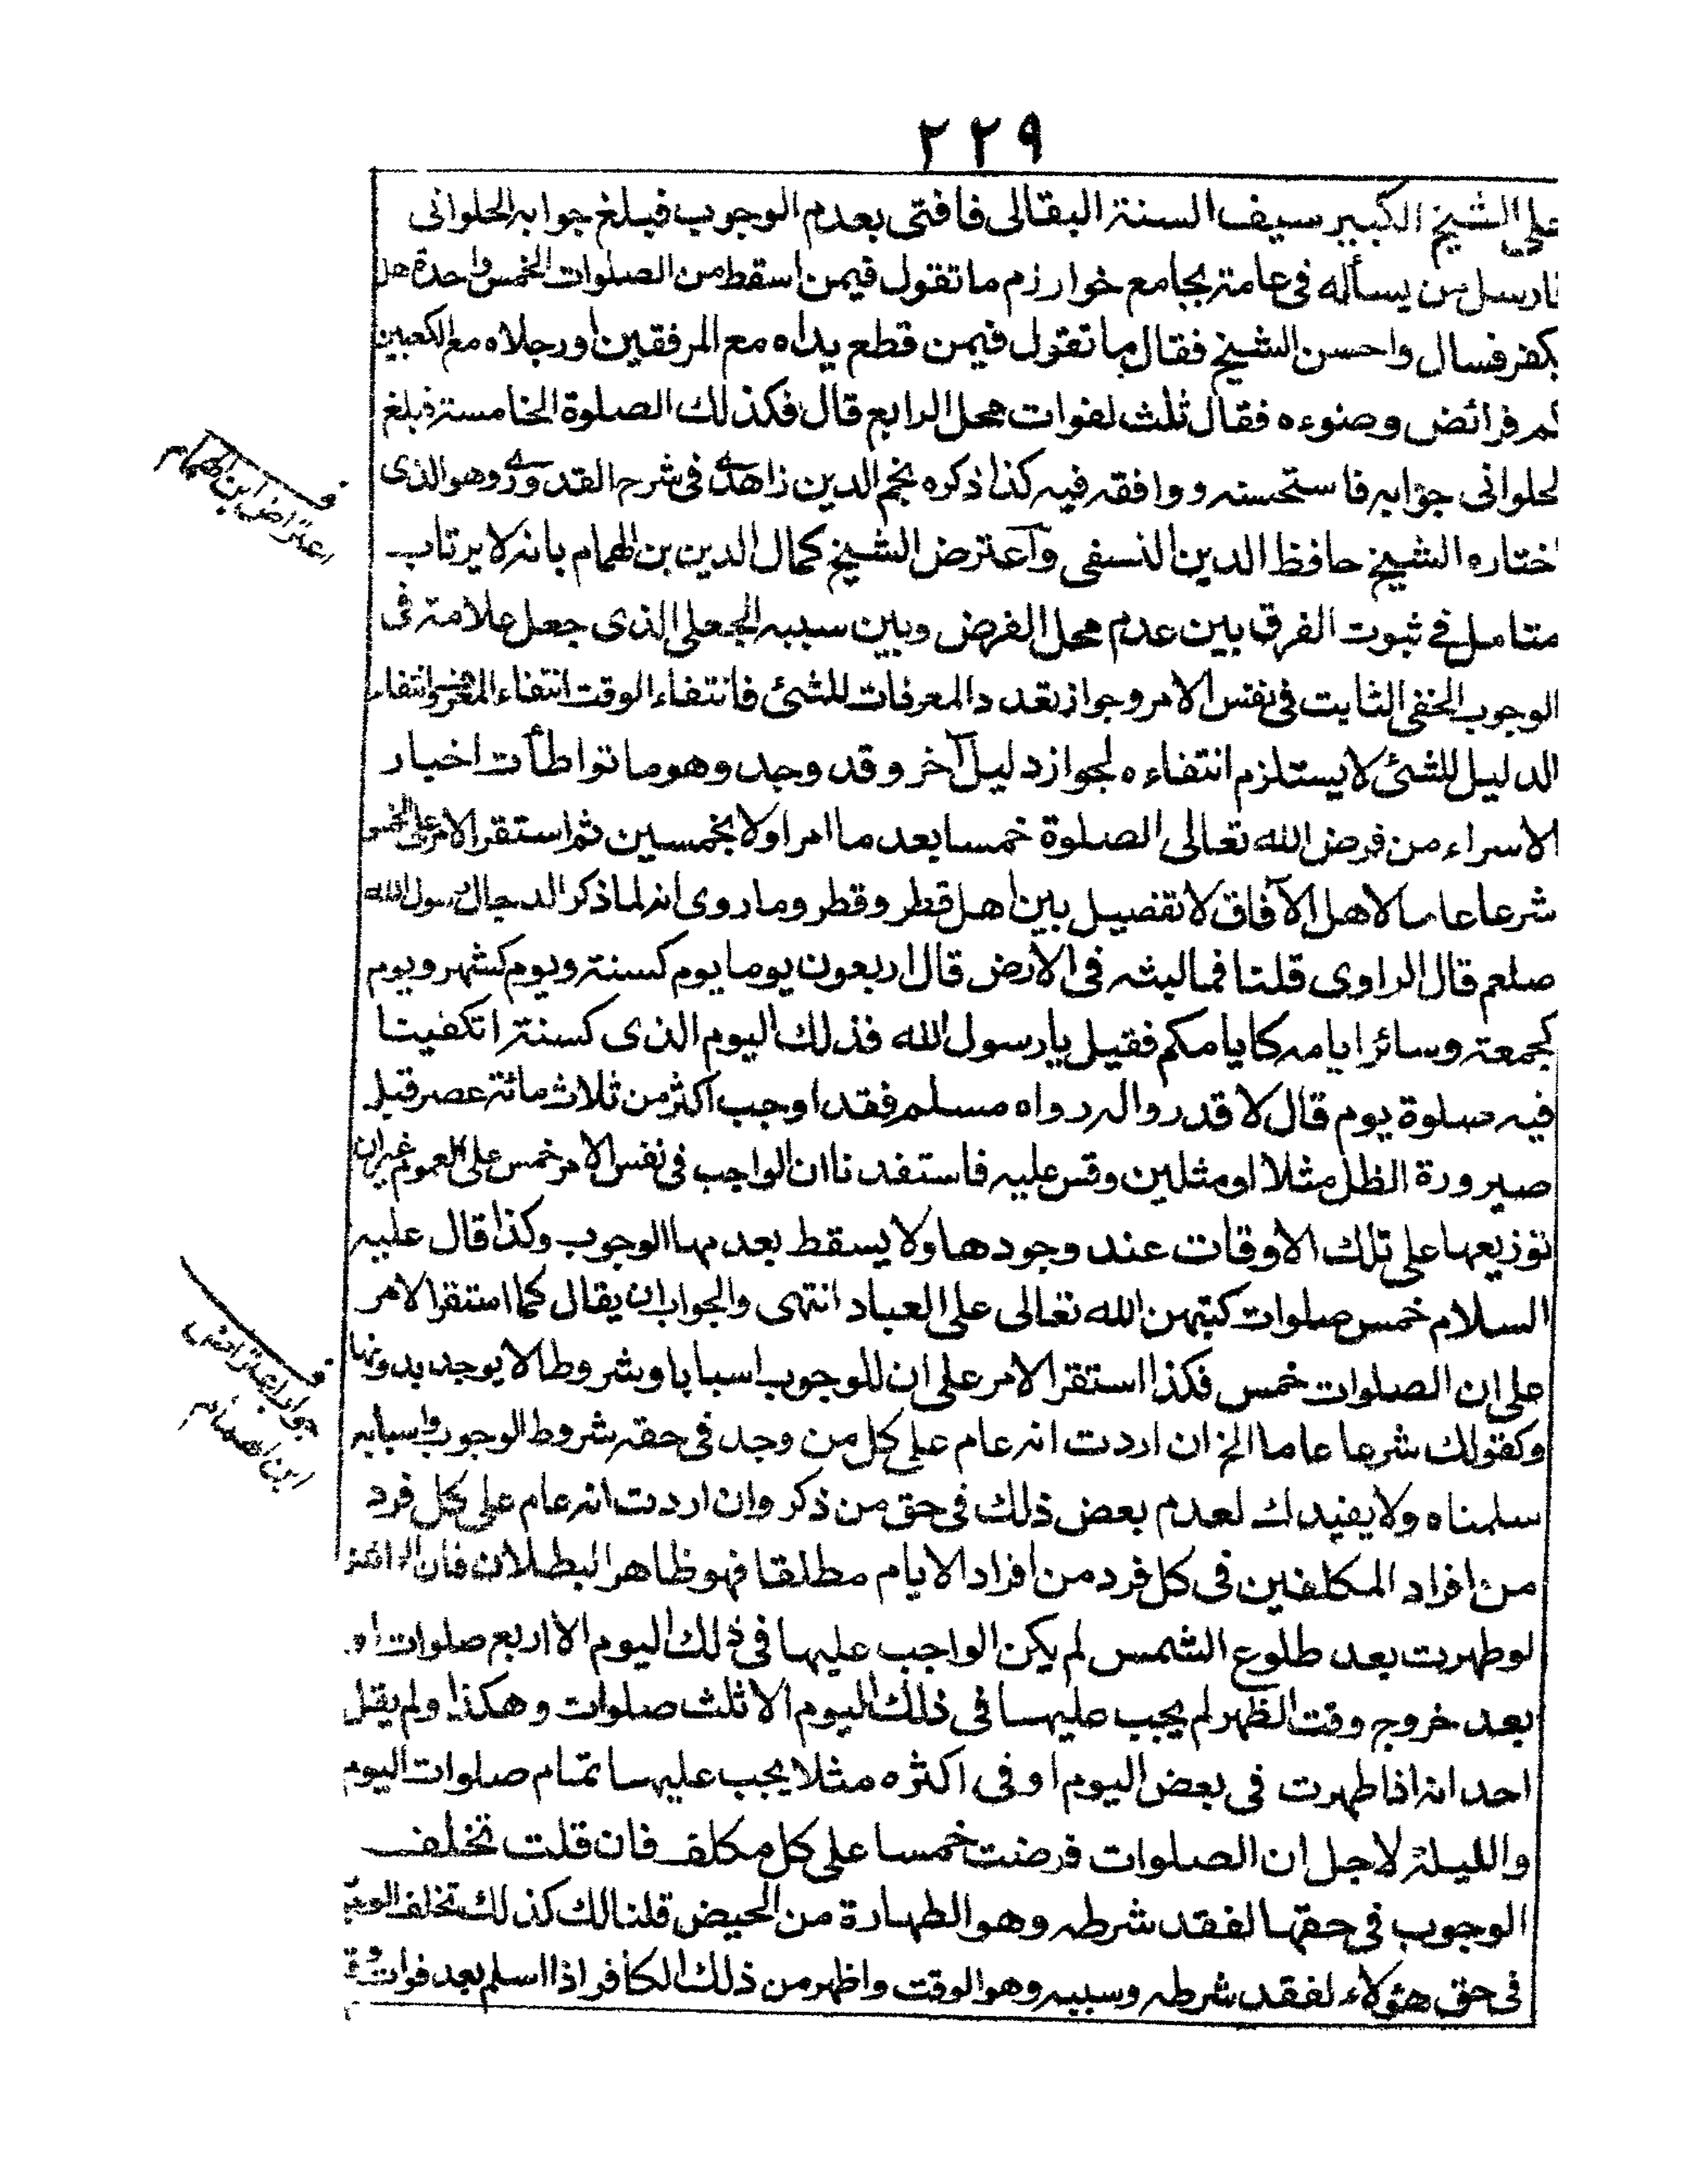 ٢٢٩
على الشيخ الكبير سيف السنة البقالى فافتى بعدم الوجوب فبلغ جوابه الحلوانى
فارسل من يسأله فى عامته بجامع خوارزم ما تقول فيمن اسقط من الصلوات الخمس واحدة هل
يكفر فسال واحسن الشيخ فقال ما تقول فيمن قطع يداه مع المرفقين او رجلاه مع الكعبين
كم فرائض وضوءه فقال ثلث لفوات محل الرابع قال فكذلك الصلوة الخامسة فبلغ
لحلوانى جوابه فاستحسنه ووافقه فيه كذا ذكره نجم الدين زاهدى فى شرح القدورى وهو الذى
اختاره الشيخ حافظ الدين النسفى وآعترض الشيخ كمال الدين بن الهمام بانه لا يرتاب
متامل فى ثبوت الفرق بين عدم محل الفرض وبين سببه الجعلى الذى جعل علامة فى
الوجوب الخفى الثابت فى نفس الامر وجواز تعدد المعرفات للشئ فانتفاء الوقت انتفاء المعرف وانتفاء
الدليل للشئ لا يستلزم انتفاءه لجواز دليل آخر وقد وجد وهو ما تواطأت اخبار
الاسراء من فرض الله تعالى الصلوة خمسا بعد ما امر اولا بخمسين ثم استقر الامر على الخمس
شرعا عاما لاهل الآفاق لا تفصيل بين اهل قطر وقطر وما روى انه لما ذكر الدجال رسول الله
صلعم قال الراوى قلنا فما لبثه فى الارض قال اربعون يوما يوم كسنة ويوم كشهر ويوم
كجمعة وسائر ايامه كايامكم فقيل يا رسول الله فذلك اليوم الذى كسنة اتكفينا
فيه صلوة يوم قال لا قدروا له رواه مسلم فقد اوجب اكثر من ثلاث مائة عصر قبل
صيرورة الظل مثلا او مثلين وقس عليه فاستفدنا ان الواجب فى نفس الامر خمس على العموم غير ان
توزيعها على تلك الاوقات عند وجودها ولا يسقط بعدمها الوجوب وكذا قال عليه
السلام خمس صلوات كتبهن الله تعالى على العباد انتهى والجواب ان يقال كما استقر الامر
على ان الصلوات خمس فكذا استقر الامر على ان للوجوب اسبابا وشروطا لا يوجد بدونها
وكقولك شرعا عاما الخ ان اردت انه عام على كل من وجد فى حقه شروط الوجوب واسبابه
سلمناه ولا يفيدك لعدم بعض ذلك فى حق من ذكر وان اردت انه عام على كل فرد
من افراد المكلفين فى كل فرد من افراد الايام مطلقا فهو ظاهر البطلان فان
لو طهرت بعد طلوع الشمس لم يكن الواجب عليها فى ذلك اليوم الا اربع صلوات او
بعد خروج وقت الظهر لم يجب عليها فى ذلك اليوم الا ثلث صلوات وهكذا ولم يقل
احد انه اذا طهرت فى بعض اليوم او فى اكثره مثلا يجب عليها تمام صلوات اليوم
والليلة لاجل ان الصلوات فرضت خمسا على كل مكلف فان قلت تخلف
الوجوب فى حقها لفقد شرطه وهو الطهارة من الحيض قلنا لك كذلك تخلف
فى حق هؤلاء لفقد شرطه وسببه وهو الوقت واظهر من ذلك الكافر اذا اسلم بعد فوات
اعتراض ابن الهمام
جواب اعتراض
ابن الهمام